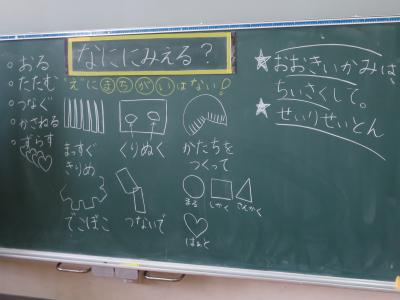 なににみえる？
えにまちがいはない！
・おる
・たたむ
・つなぐ
・かさねる
・ずらす
まっすぐ
きりめ
くりぬく
かたちを
つくって
まる
しかく
さんかく
はぁと
でこぼこ
つないで
★おおきいかみは、
ちいさくして。
★せいりせいとん